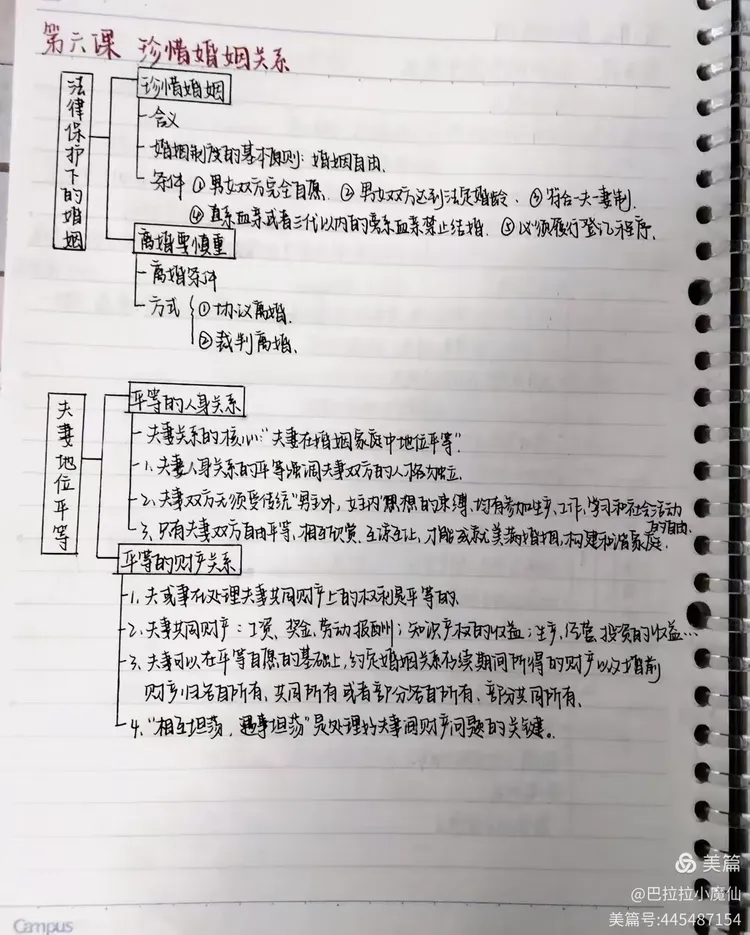 第六课 珍惜婚姻关系
法律保护下的婚姻
珍惜婚姻
含义
婚姻制度的基本原则：婚姻自由.
条件 ①男女双方完全自愿. ②男女双方达到法定婚龄. ③符合一夫一妻制.
④直系血亲或者三代以内的旁系血亲禁止结婚. ⑤必须履行登记程序.
离婚要慎重
离婚条件
方式 ①协议离婚.
②裁判离婚.
夫妻地位平等
平等的人身关系
夫妻关系的核心："夫妻在婚姻家庭中地位平等".
1. 夫妻人身关系的平等强调夫妻双方的人格独立.
2. 夫妻双方无须受传统"男主外, 女主内"思想的束缚, 均有参加生产、工作、学习和社会活动
的自由.
3. 只有夫妻双方自由平等、相互欣赏、互谅互让, 才能成就美满婚姻, 构建和谐家庭.
平等的财产关系
1. 夫或妻在处理夫妻共同财产上的权利是平等的.
2. 夫妻共同财产：工资、奖金、劳动报酬；知识产权的收益；生产、经营、投资的收益…
3. 夫妻可以在平等自愿的基础上, 约定婚姻关系存续期间所得的财产以及婚前
财产归各自所有、共同所有或者部分各自所有、部分共同所有.
4. "相互坦荡, 遇事坦荡"是处理好夫妻间财产问题的关键。
Campus
美篇
@巴拉拉小魔仙
美篇号:445487154